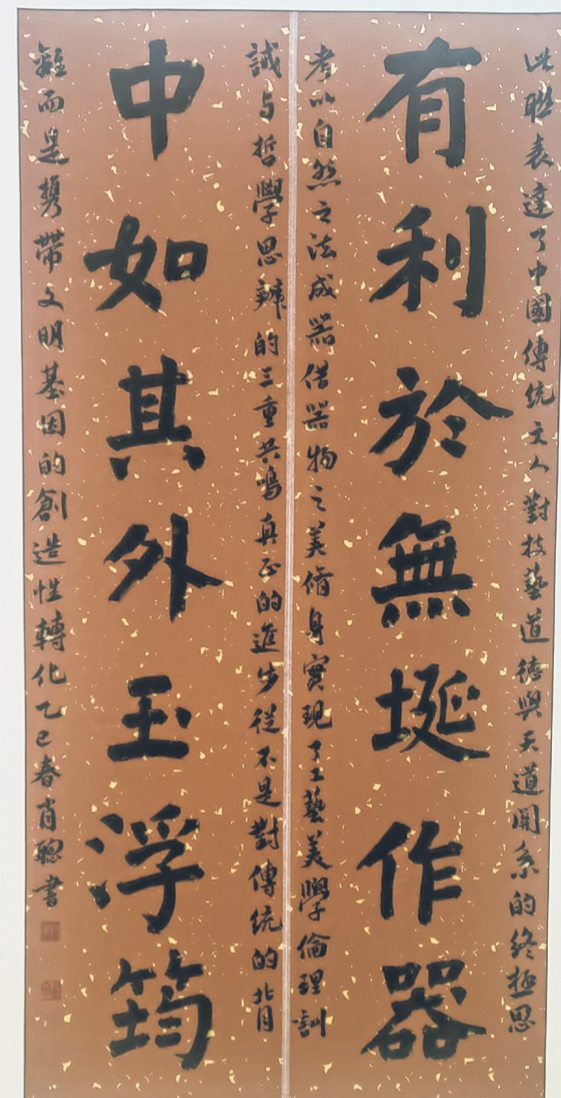 此聯表達了中國傳統文人對技藝道德與天道関系的终極思
有利於無埏作器
考以自然之法成器借器物之美脩身實現了工藝美學倫理訓
誡与哲學思辨的三重共鳴真正的進步從不是對傳统的背
中如其外玉浮筠
離而是携帶文明基因的創造性轉化乙巳春肖聰書